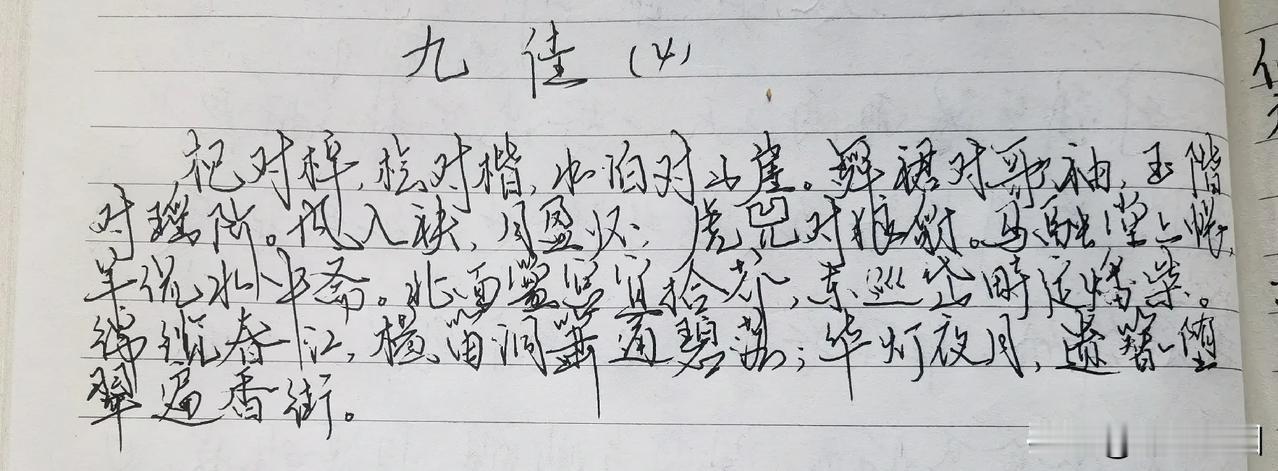 九佳(4)
杞对梓,桧对楷,水泊对山崖。舞裙对歌袖,玉阶
对瑶阶。风入袂,月盈怀,虎兕对狼豺。马融堂上帐,
羊侃水中斋。北面黉宫宜拾芥,东巡岱畤定燔柴。
锦缆春江,横笛洞箫通碧落;华灯夜月,遗簪堕
翠遍香街。